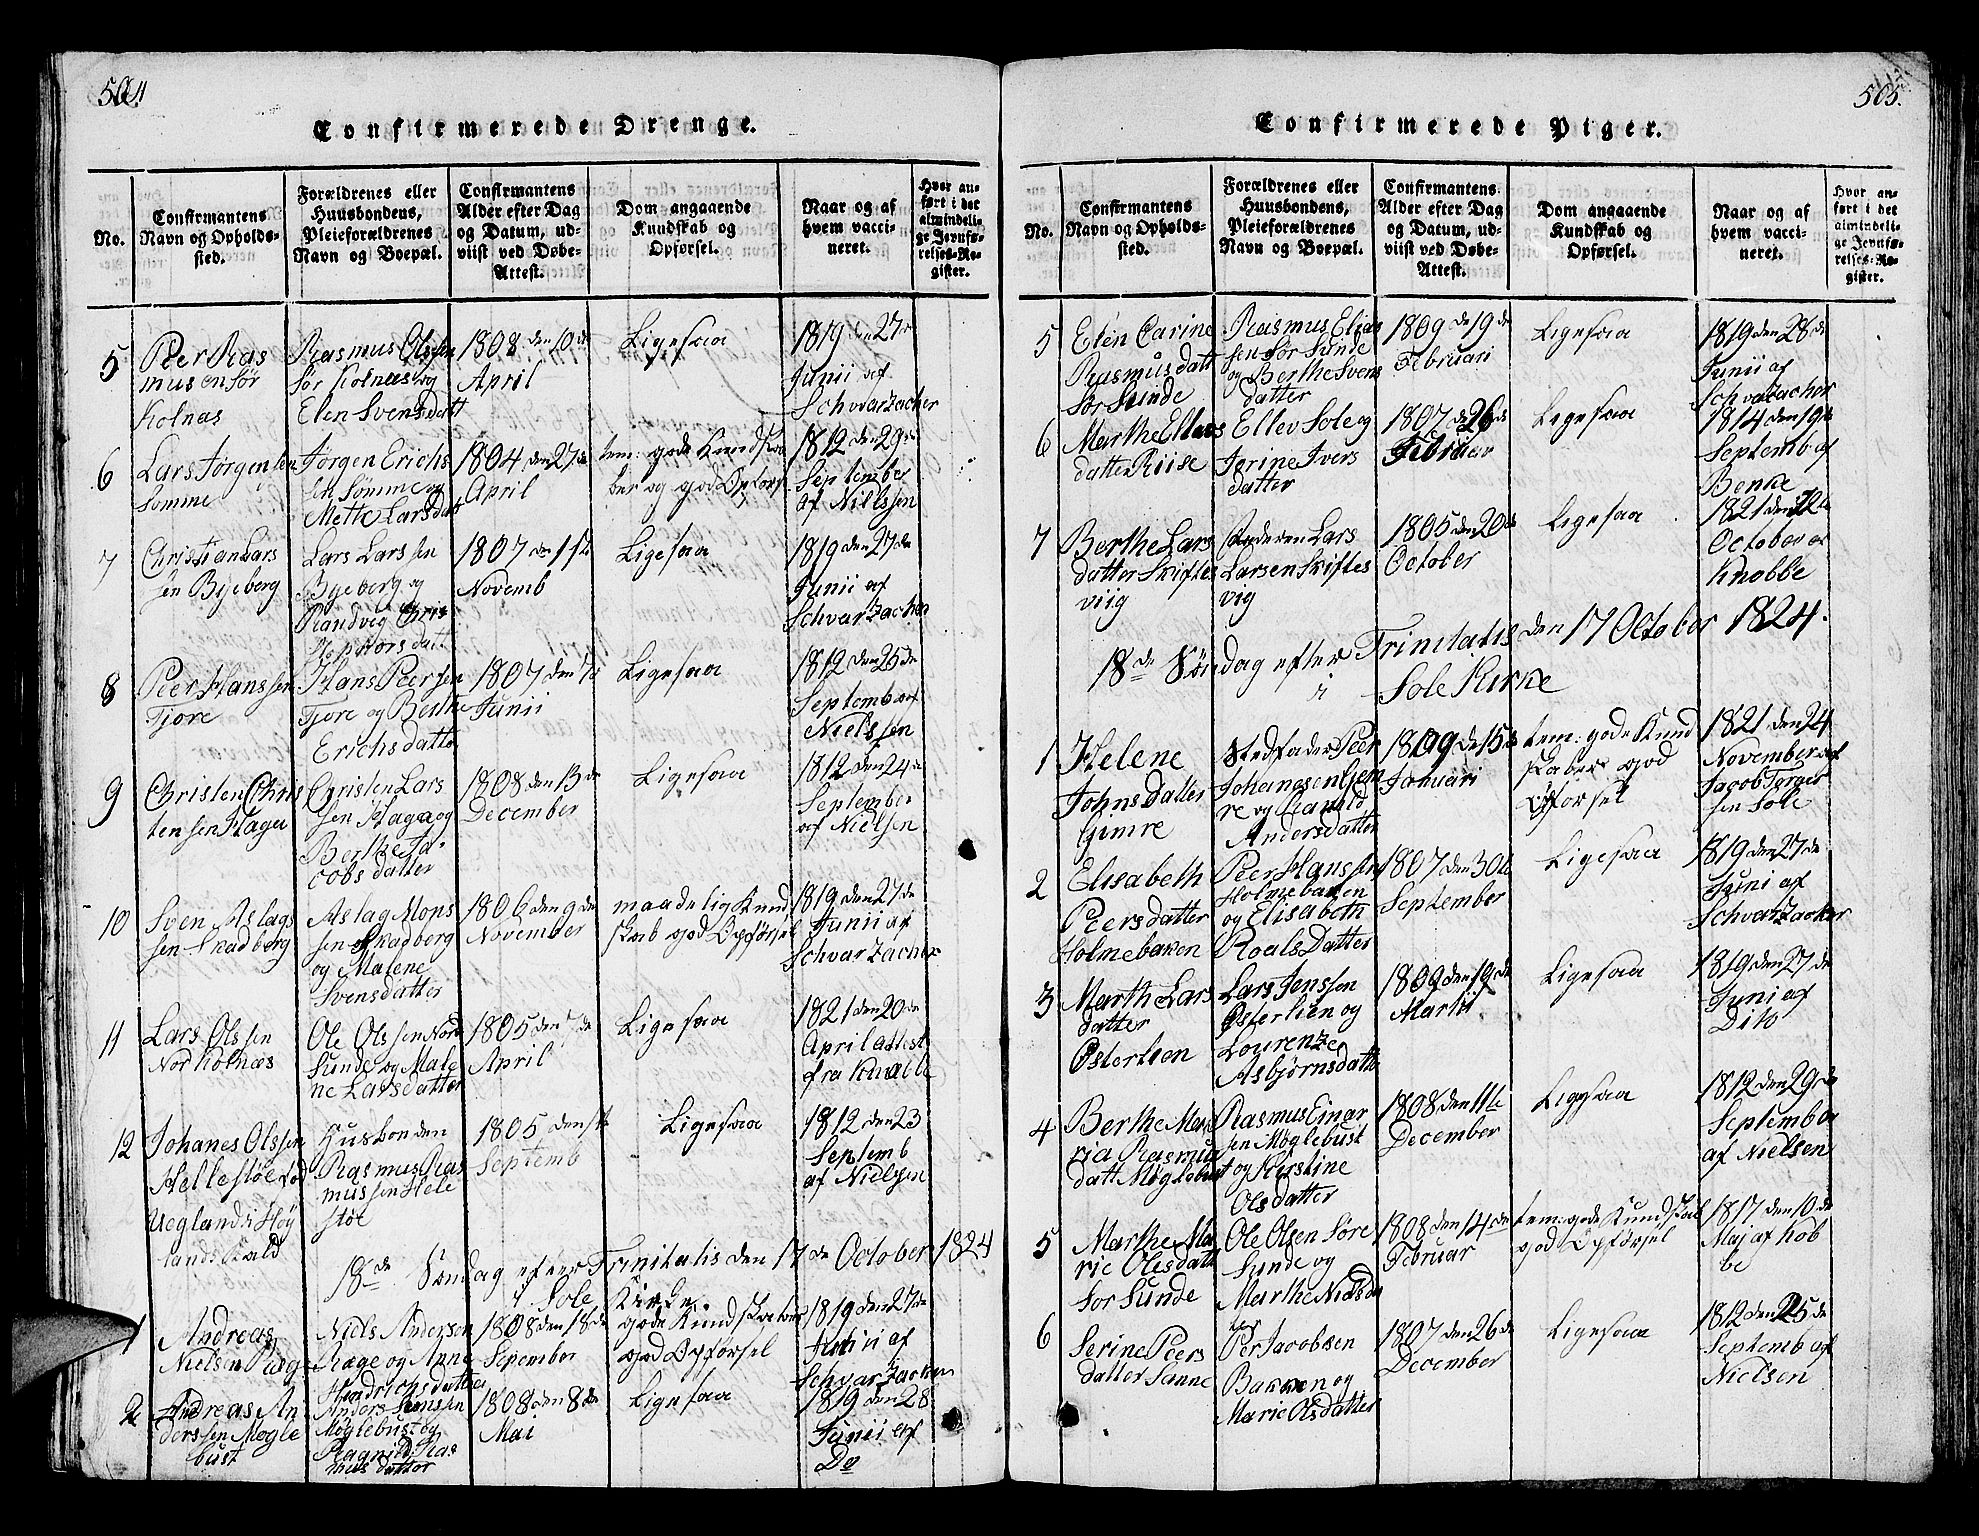 504
Confirmerede Drenge.
No.
Confirmantens
Navn og Opholds-
sted.
Forældrenes eller
Huusbondens,
Pleieforældrenes
Navn og Boepæl.
Confirmantens
Alder efter Dag
og Datum, ud-
viist ved Døbe-
Attest.
Dom angaaende
Kundskab og
Opførsel.
Naar og af
hvem vacci-
neret.
Hvor an-
ført i det
almindeli-
ge Jevnfø-
relses-Re-
gister.
5
Peer Ras
musen Sør
Kolnæs
Rasmus Olssen
Sør Kolnæs og
Elen Svensdatt
1808 den 10de
April
Ligesaa
1819 den 27de
Junii af
Schvarzacher
6
Lars Jørgensen
Sømme
Jørgen Erichs
sen Sømme og
Mette Larsdat
1804 den 27de
April
tem: gode Kundska
ber og god Opførs
1812 den 29de
September
af Nielssen
7
Christian Lars
sen Byeberg
Lars Larssen
Byeberg og
Randvig Chris
tophorsdatt
1807 den 1ste
Novemb
Ligesaa
1819 den 27de
Junii af
Schvarzacher
8
Peer Hanssen
Tjore
Hans Peersen
Tjore og Berthe
Erichsdatter
1807 den 7de
Junii
Ligesaa
1812 den 25de
Septemb af
Nielssen
9
Christen Chris
tensen Haga
Christen Lars
sen Haga og
Berthe Ja-
cobsdatter
1808 den 13de
December
Ligesaa
1812 den 24de
September
af Nielsen
10
Sven Aslags
sen Skadberg
Aslag Mons
sen Skadberg
og Malene
Svensdatter
1806 den 9de
November
maadelig Kund
skab god Opførsel
1819 den 27de
Junii af
Schvarzacher
11
Lars Olssen
Nor Kolnæs
Ole Olssen Nord
Sunde og Male
ne Larsdatter
1805 den 7de
April
Ligesaa
1821 den 20de
April attest
fra Knobbe
12
Johanes Olssen
Hellestøe fød
Ueglands Høy
lands Kald
Husbonden
Rasmus Ras
mussen Hele
støe
1805 den 1ste
Septemb
Ligesaa
1812 den 23
Septemb
af Nielsen
18de Søndag efter Trinitatis den 17de October 1824
i Sole Kirke.
1
Andreas
Nielsen Ræge
Niels Andersen
Ræge og Anne
Hendrichsdatter
1808 den 18de
Sepember
gode Kundskaber
god Opførsel
1819 den 27de
Junii af
Schvarzacher
2
Andreas An
derssen Møgle
bust
Anders
Møglebust og
Ragnild Ras
mus datter
1808 den 8de
Mai
Ligesaa
1819 den 28
Junii af
Do
505.
Confirmerede Piger.
No.
Confirmantens
Navn og Opholds-
sted.
Forældrenes eller
Huusbondens,
Pleieforældrenes
Navn og Boepæl.
Confirmantens
Alder efter Dag
og Datum, ud-
viist ved Døbe-
Attest.
Dom angaaende
Kundskab og
Opførsel.
Naar og af
hvem vacci-
neret.
Hvor an-
ført i det
almindelig
ge Jevnfø-
relses-Re-
gister.
5
Elen Carine
Rasmusdatt
Sør Sunde
Rasmus Elias
sen Sør Sunde
og Berthe Svens
datter
1809 de 19de
Februari
Ligesaa
1819 den 28de
Junii af
Schvarzacher
6
Marthe Ellevs
datter Riise
Ellev Sole og
Jorine Ivers
datter
1807 de 26de
Februar
Ligesaa
1814 den 19de
Septemb af
Benke
7
Berthe Lars
datter Skiftes
viig
Faderen Lars
Larsen Skiftes
vig
1805 den 20de
October
Ligesaa
1821 den 22de
October af
Knobbe
18de Søndag efter Trinitatis den 17 October 1824.
i Sole Kirke
1
Helene
Johnsdatter
Gimre
Stedfader Peer
Johanesen Gjem
re og Ranild
Andersdatter
1809 de 15de
Januari
tem: gode Kund
skaber god
Opførsel
1821 den 24
November af
Jacob Torger
sen Sole
2
Elisabeth
Peersdatter
Holmebaken
Peer Hanssen
Holmebaken
og Elisabeth
Roals Datter
1807 den 30te
September
Ligesaa
1819 den 27de
Juni af
Schvarzacher
3
Marth Lars
datter
Østerhen
Lars Jenssen
Østerhen og
Lourenze
Asbjørnsdatte
1809 den 19de
Martii
Ligesaa
1819 den 27de
Juni af
Dito
4
Berthe Ma
ria Rasmus
datt Møglebust
Rasmus Einar
sen Møglebust
og Kerstine
Olsdatter
1808 den 11te
December
Ligesaa
1812 den 29de
September
af Nielsen
5
Marthe Ma
rie Olesdatt
Sør Sunde
Ole Olsen Søre
Sunde og
Marthe Nielsda
ter
1808 den 14de
Februar
tem: gode Kundskab
god Opførsel
1817 den 10de
Maj af Kob
be
6
Serine Peers
datter Sanne
Per Jacobsen
Bakken og
Marie Olsdatter
1807 den 26de
December
Ligesaa
1812 den 25de
Septemb af
Nielsen